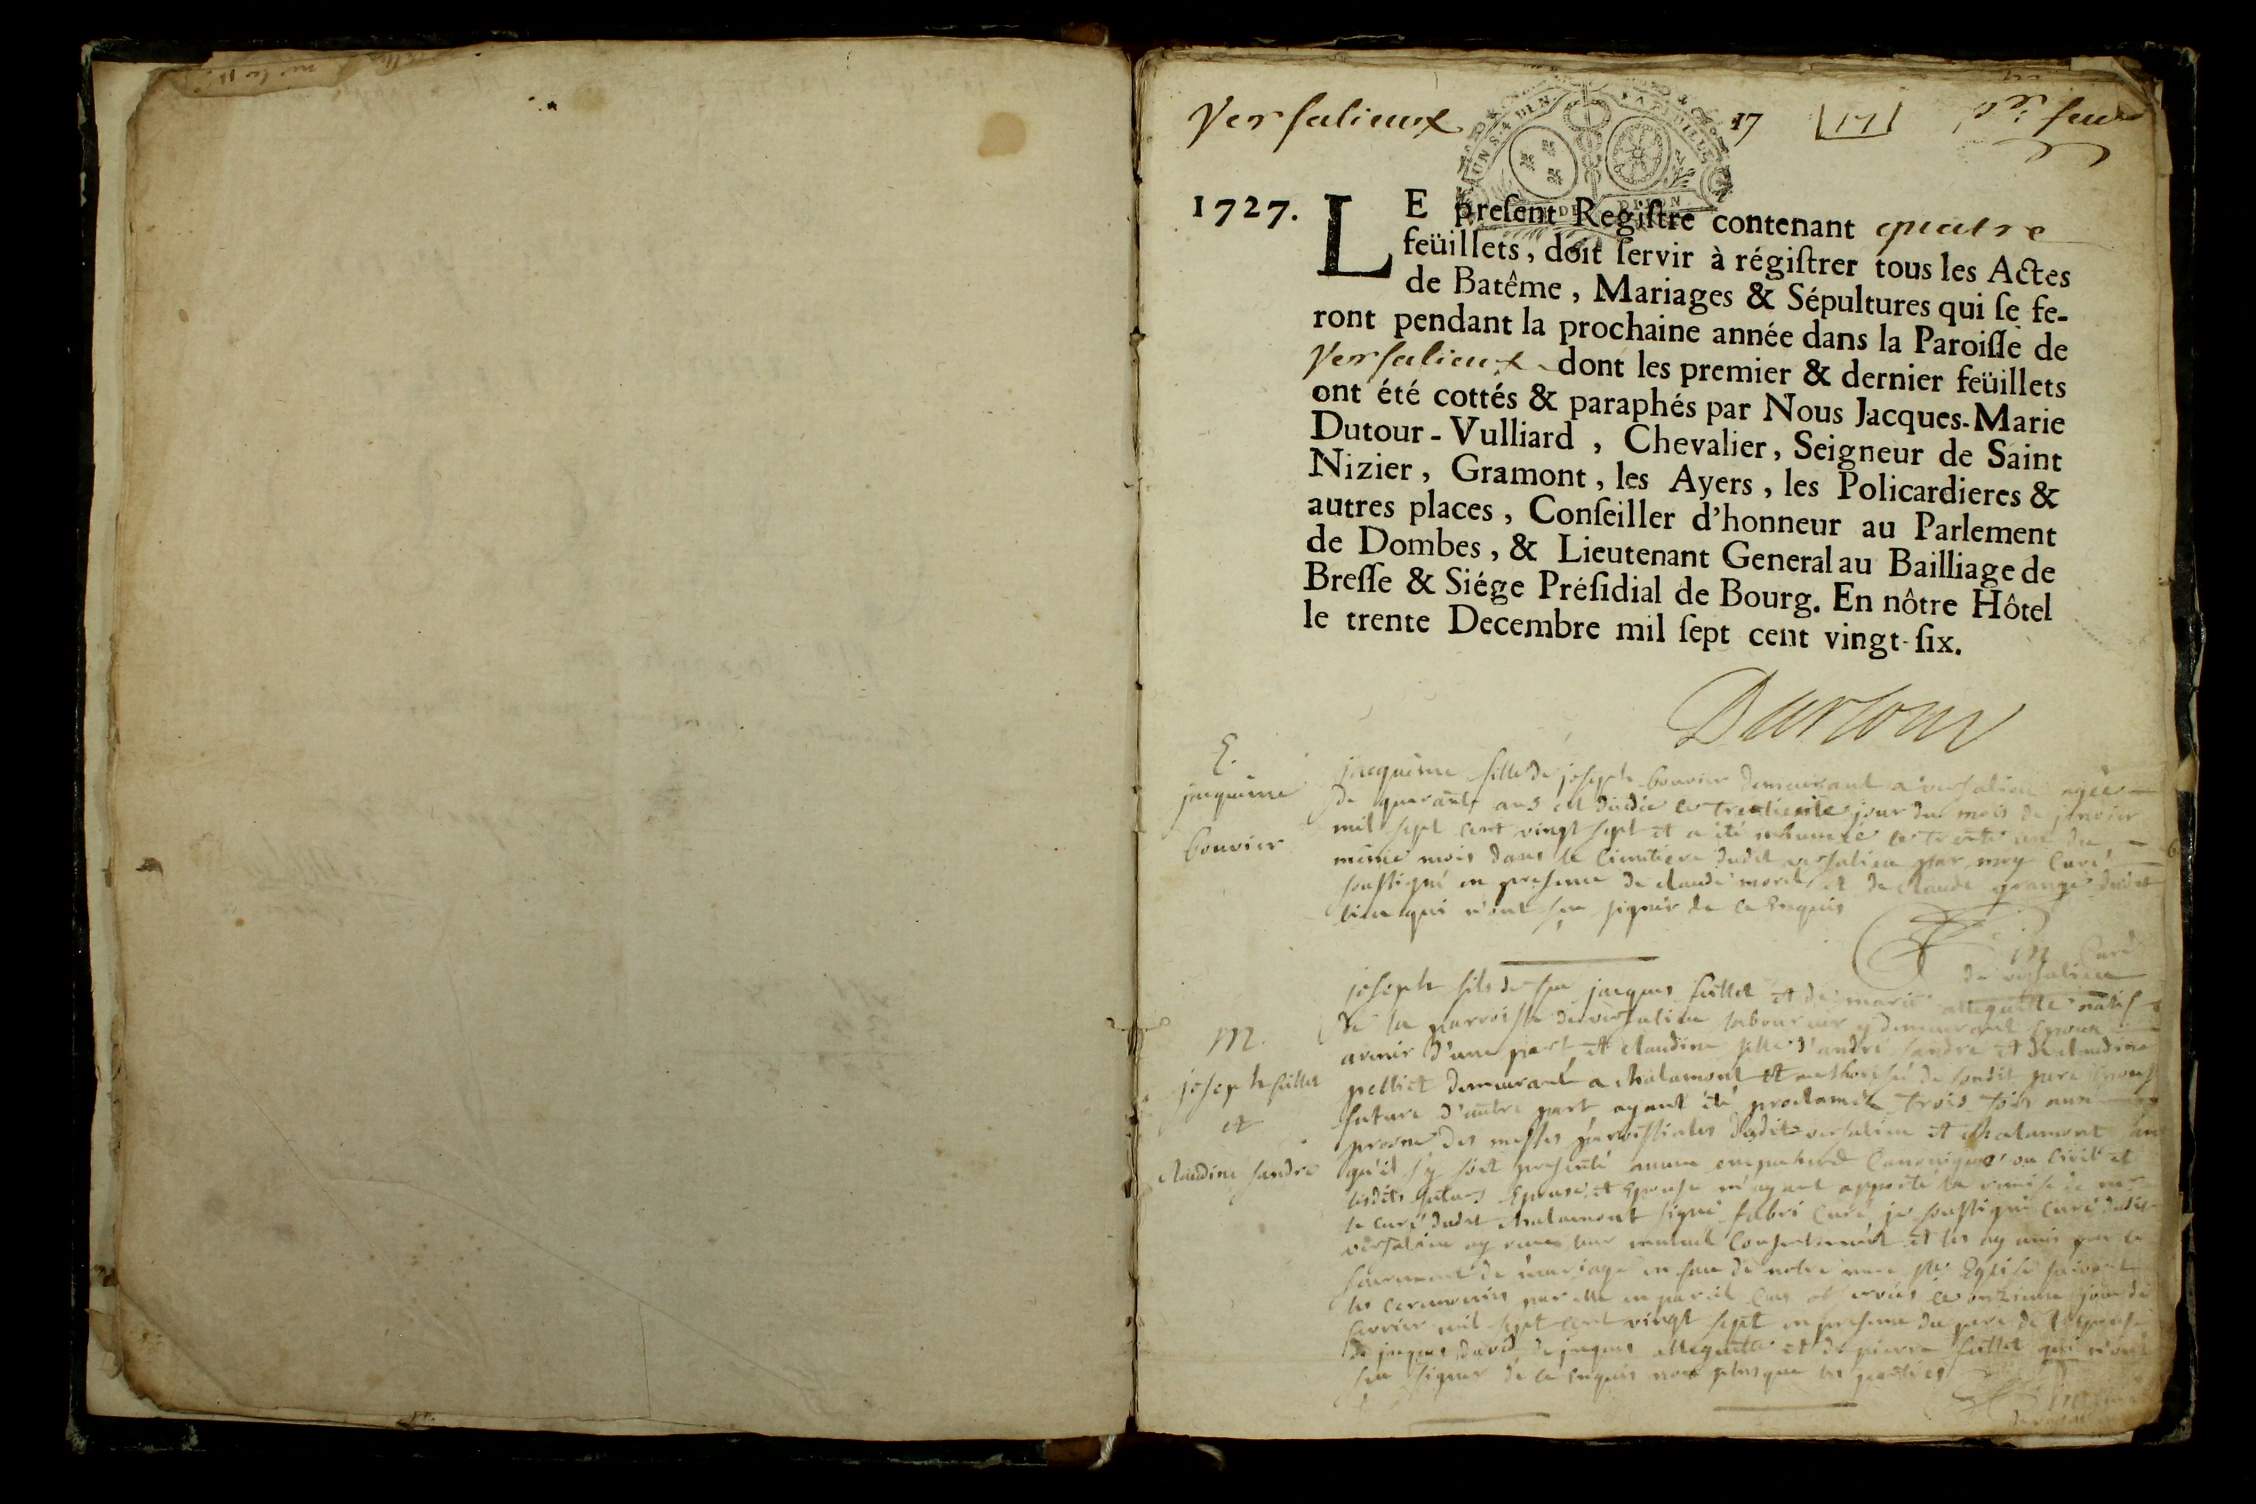 Versalieux
17
17
UN S. 4 DEN.
1727.
LE preſent Regiſtre contenant quatre
feüillets, doit ſervir à régiſtrer tous les Actes
de Batême, Mariages & Sépultures qui ſe fe-
ront pendant la prochaine année dans la Paroiſſe de
Versalieux dont les premier & dernier feüillets
ont été cottés & paraphés par Nous Jacques-Marie
Dutour-Vulliard, Chevalier, Seigneur de Saint
Nizier, Gramont, les Ayers, les Policardieres &
autres places, Conſeiller d'honneur au Parlement
de Dombes, & Lieutenant General au Bailliage de
Breſſe & Siége Préſidial de Bourg. En nôtre Hôtel
le trente Decembre mil ſept cent vingt-ſix.
jacqueme
bouvier
jacqueme fille de joseph bouvier demeurant a versalieu agée
de quarante ans est le trentieme jour du mois de janvier
mil sept cent vingt sept et a été inhumée le trente un du
même mois dans le cimetiere dudit versalieu par moy curé
soussigné en presence de claude morel et de claude grange dudit
lieu qui n'ont sçu signer de ce enquis
curé
de versalieu
M.
joseph fillet
et
claudine sandre
joseph fils de feu jacques fillet et de marie natif
de la parroisse de versalieu laboureur y demeurant epoux
avenir d'une part et claudine fille d'andré sandre et de claudine
pelliet demeurant a chalamont et authorisée de sondit pere epouse
future d'autre part ayant été proclamés trois fois aux
prosne des messes parroissiales dudit versalieu et chalamont sans
qu'il s'y soit presenté aucun canonique ou civil et
lesdits futurs epoux et epouse m'ayant apporté la remise de mr
le curé dudit chalamont signé fabri curé je soussigné curé dudit
versalieu ay receu leur mutuel consentement et les ay unis par le
sacrement de mariage en face de notre mere ste Eglise suivant
les ceremonies par elle en pareil cas observées ce onzieme jour de
fevrier mil sept cent vingt sept en presence du pere de l'epouse
de jaques david de jaques et de pierre fillet qui n'ont
sçu signer de ce enquis non plus que les parties